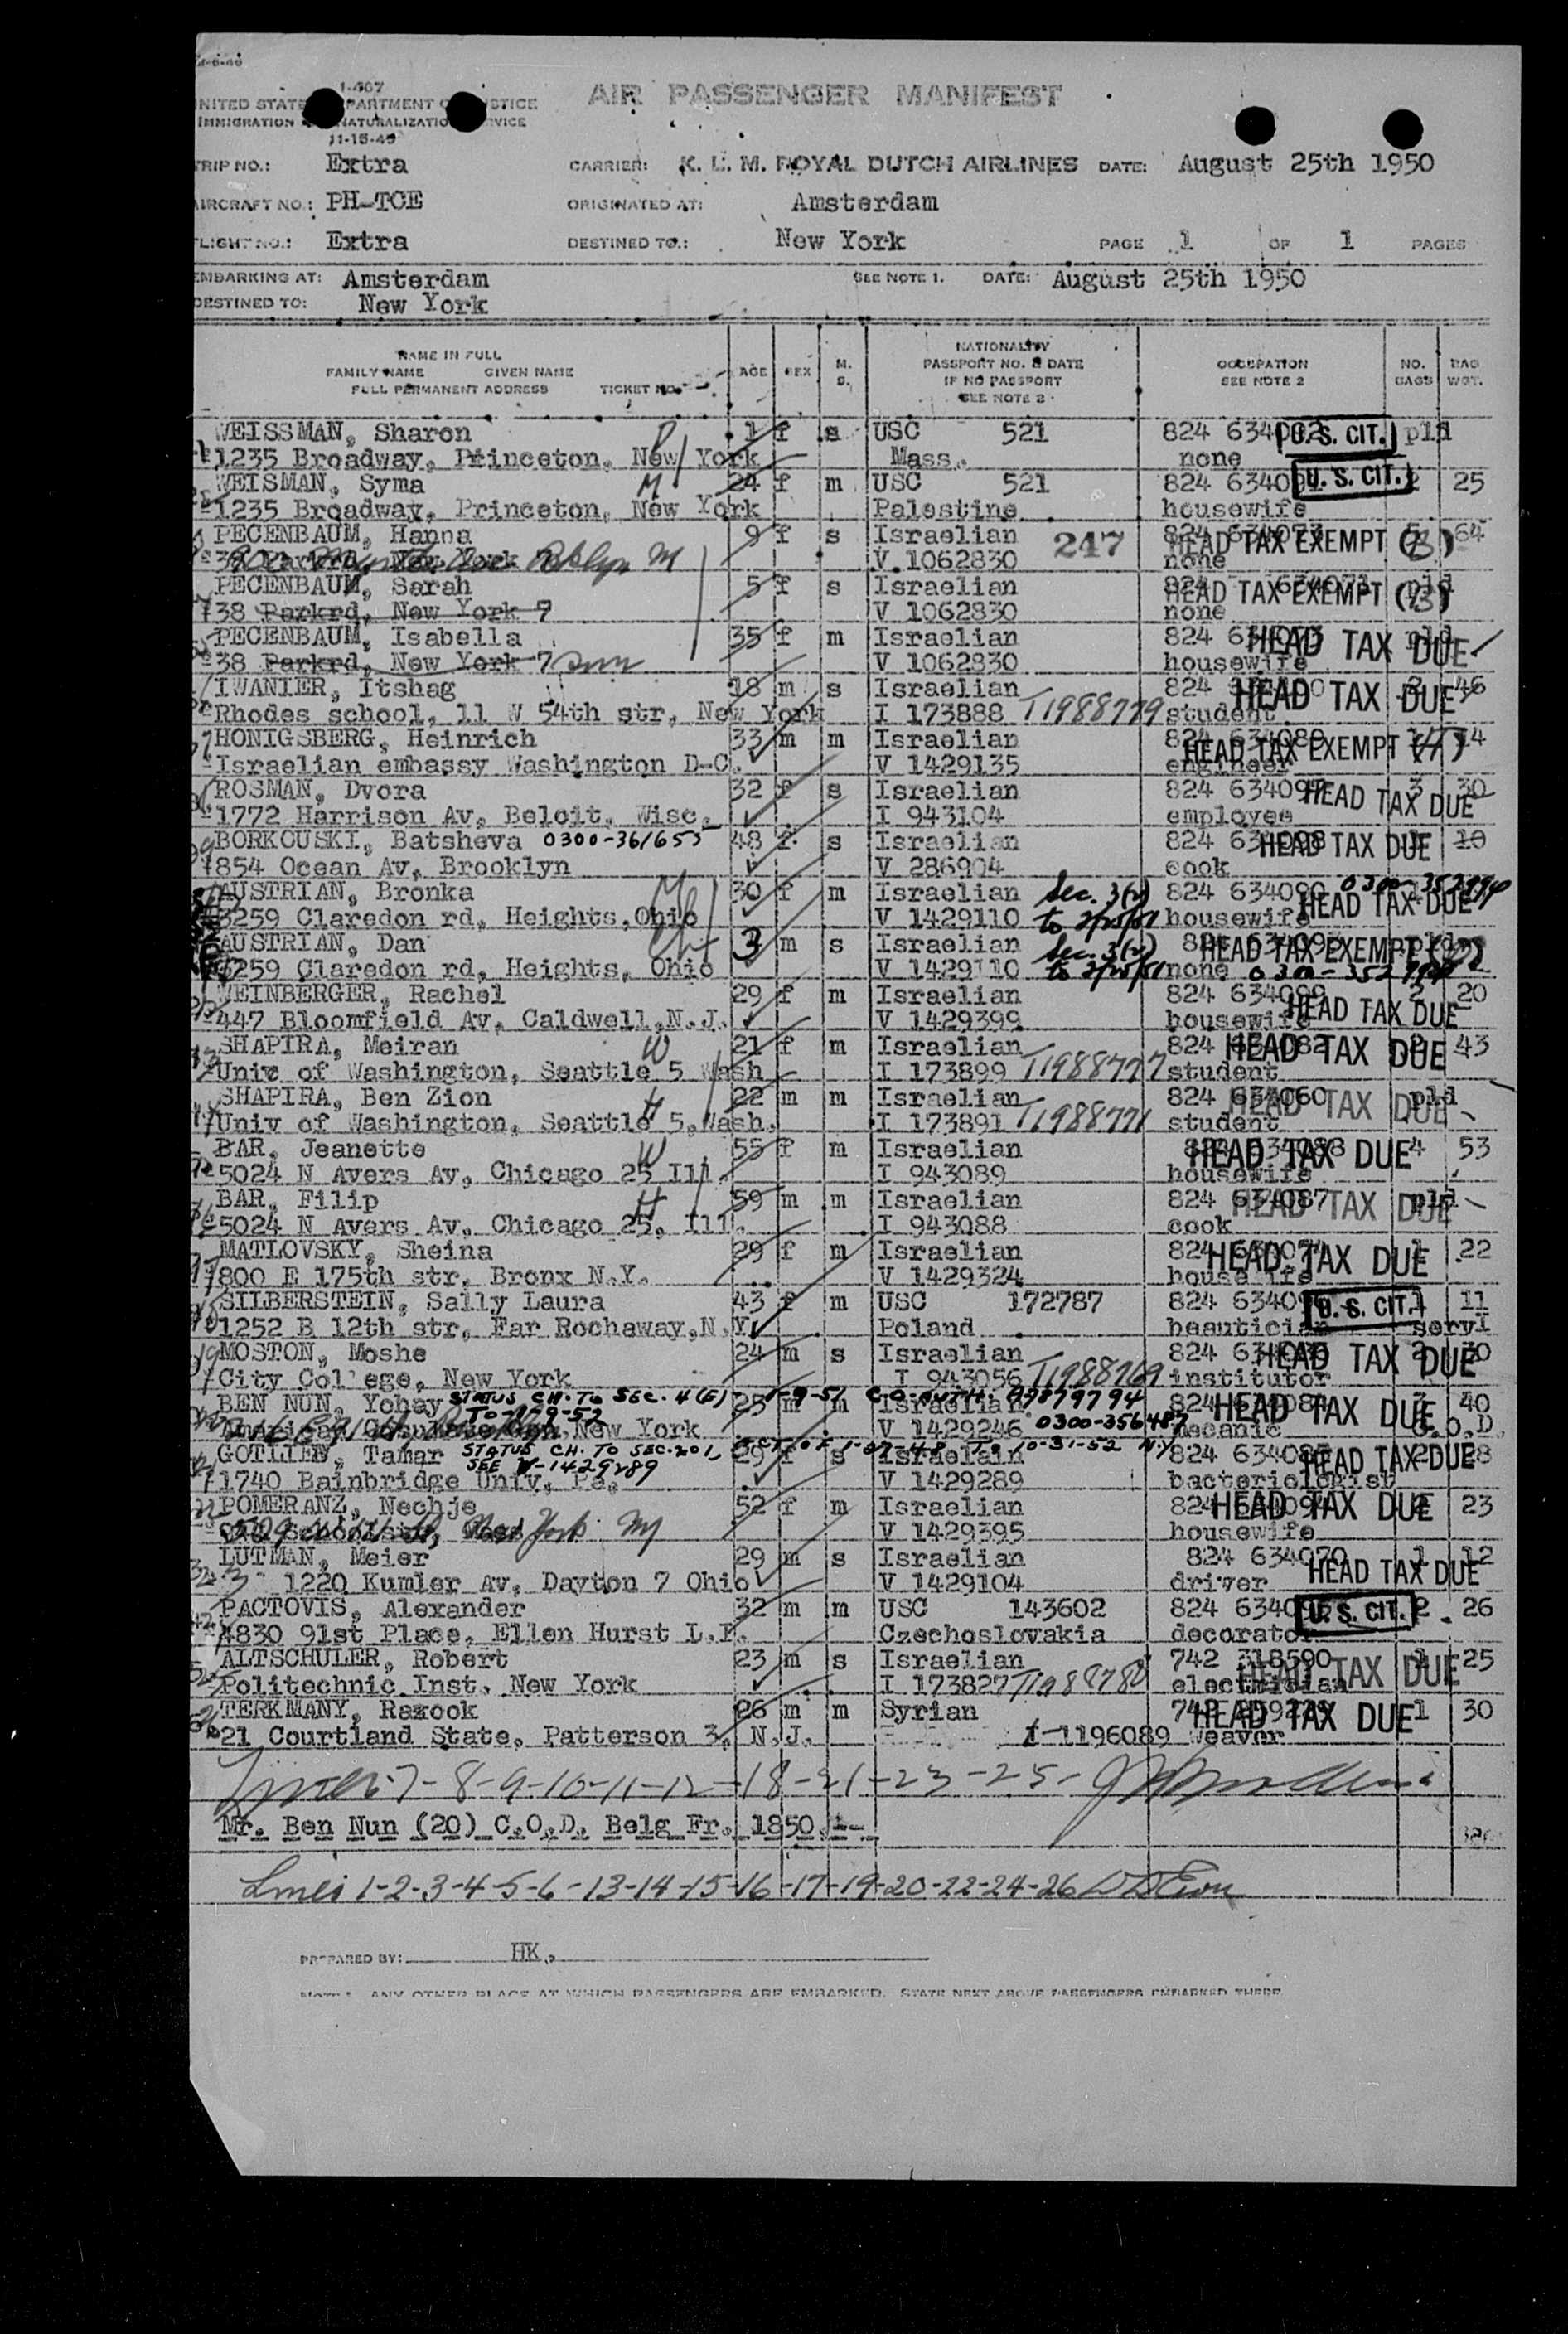 AIR PASSENGER MANIFEST
11-15-49
TRIP NO.: Extra CARRIER: K. L. M. ROYAL DUTCH AIRLINES DATE: August 25th 1950
AIRCRAFT NO.: PH-TCE ORIGINATED AT: Amsterdam
FLIGHT NO.: Extra DESTINED TO.: New York PAGE 1 OF 1 PAGES
EMBARKING AT: Amsterdam SEE NOTE 1. DATE: August 25th 1950
DESTINED TO: New York
NAME IN FULL
FAMILY NAME GIVEN NAME
FULL PERMANENT ADDRESS TICKET NO.
AGE SEX M. S.
NATIONALITY
PASSPORT NO. & DATE
IF NO PASSPORT
SEE NOTE 2
OCCUPATION
SEE NOTE 2
NO. BAGS
BAG WGT.
WEISSMAN, Sharon 1 f s USC 521 824 U.S. CIT. pld
1235 Broadway, Princeton, New York Mass. none
WEISMAN, Syma M 24 f m USC 521 824 U.S. CIT. 2 25
1235 Broadway, Princeton, New York Palestine housewife
PECENBAUM, Hanna 9 f s Israelian 247 824 634073 HEAD TAX EXEMPT 64
V 1062830 none
PECENBAUM, Sarah 5 f s Israelian 824 HEAD TAX EXEMPT pld
738 Parkrd, New York 7 V 1062830 none
PECENBAUM, Isabella 35 f m Israelian 824 HEAD TAX DUE
38 Parkrd, New York 7 V 1062830 housewife
IWANIER, Itshag 18 m s Israelian 824 HEAD TAX DUE 46
Rhodes school, 11 W 54th str, New York I 173888 T1988779 student
HONIGSBERG, Heinrich 33 m m Israelian 824 634089 HEAD TAX EXEMPT 14
Israelian embassy Washington D-C. V 1429135 engineer
ROSMAN, Dvora 32 f s Israelian 824 HEAD TAX DUE 3 30
1772 Harrison Av, Beloit, Wisc. I 943104 employee
BORKOUSKI, Batsheva 0300-361655 48 f s Israelian 824 HEAD TAX DUE 10
854 Ocean Av, Brooklyn V 286904 cook
AUSTRIAN, Bronka 30 f m Israelian Sec. 3(2) 824 634090 HEAD TAX DUE
3259 Claredon rd, Heights, Ohio V 1429110 to 2/25/51 housewife
AUSTRIAN, Dan 3 m s Israelian Sec. 3(2) HEAD TAX EXEMPT
3259 Claredon rd, Heights, Ohio V 1429110 to 2/25/51 none
WEINBERGER, Rachel 29 f m Israelian 824 634099 HEAD TAX DUE 20
447 Bloomfield Av, Caldwell, N.J. V 1429399 housewife
SHAPIRA, Meiran W 21 f m Israelian 824 HEAD TAX DUE 43
Univ of Washington, Seattle 5 Wash I 173899 T1988777 student
SHAPIRA, Ben Zion H 22 m m Israelian 824 634060 HEAD TAX DUE pld
Univ of Washington, Seattle 5, Wash. I 173891 T1988771 student
BAR, Jeanette W 55 f m Israelian HEAD TAX DUE 4 53
5024 N Avers Av, Chicago 25 Ill. I 943089 housewife
BAR, Filip H 59 m m Israelian 824 HEAD TAX DUE pld
5024 N Avers Av, Chicago 25, Ill. I 943088 cook
MATLOVSKY, Sheina 29 f m Israelian 824 HEAD TAX DUE 1 22
800 E 175th str, Bronx N.Y. V 1429324 housewife
SILBERSTEIN, Sally Laura 43 f m USC 172787 824 U.S. CIT. 1 11
1252 B 12th str, Far Rochaway, N.Y. Poland beautician
MOSTON, Moshe 24 m s Israelian 824 HEAD TAX DUE 2 30
City College, New York I 943056 T1988769 institutor
BEN NUN, Yohay STATUS CH. TO SEC. 4(E) 25 m m Israelian 824 HEAD TAX DUE 40
New York V 1429246 0300-356487 mecanic C.O.D.
GOTLIEB, Tamar STATUS CH. TO SEC. 201, 29 f s Israelain 824 HEAD TAX DUE 28
SEE V-1429289
1740 Bainbridge Univ, Pa. V 1429289 bacteriologist
POMERANZ, Nechje 52 f m Israelian 824 HEAD TAX DUE 23
V 1429395 housewife
LUTMAN, Meier 29 m s Israelian 824 634070 HEAD TAX DUE 1 12
1220 Kumler Av, Dayton 7 Ohio V 1429104 driver
PACTOVIS, Alexander 32 m m USC 143602 824 U.S. CIT. 2 26
4830 91st Place, Ellen Hurst L.I. Czechoslovakia decorator
ALTSCHULER, Robert 23 m s Israelian 742 318590 HEAD TAX DUE 1 25
Politechnic Inst. New York I 173827 T1988780 electrician
TERKMANY, Razook 26 m m Syrian HEAD TAX DUE 1 30
21 Courtland State, Patterson 3, N.J. I-1196089 Weaver
7-8-9-10-11-12-18-21-23-25-
Mr. Ben Nun (20) C.O.D. Belg Fr. 1850.--
Lines 1-2-3-4-5-6-13-14-15-16-17-19-20-22-24-26
PREPARED BY: HK.
NOTE 1. ANY OTHER PLACE AT WHICH PASSENGERS ARE EMBARKED, STATE NEXT ABOVE PASSENGERS EMBARKED THERE